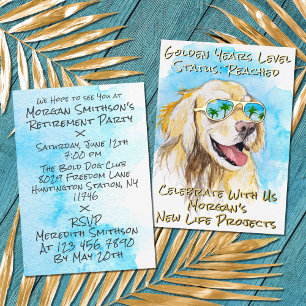 We Hope to See You at
Morgan Smithson's
Retirement Party
X
Saturday, June 12th
7:00 pm
The Bold Dog Club
8029 Freedom Lane
Huntington Station, NY
11746
X
RSVP
Meredith Smithson
At 123.456.7890
By May 20th
Golden Years Level
Status: Reached
Celebrate With Us
Morgan's
New Life Projects